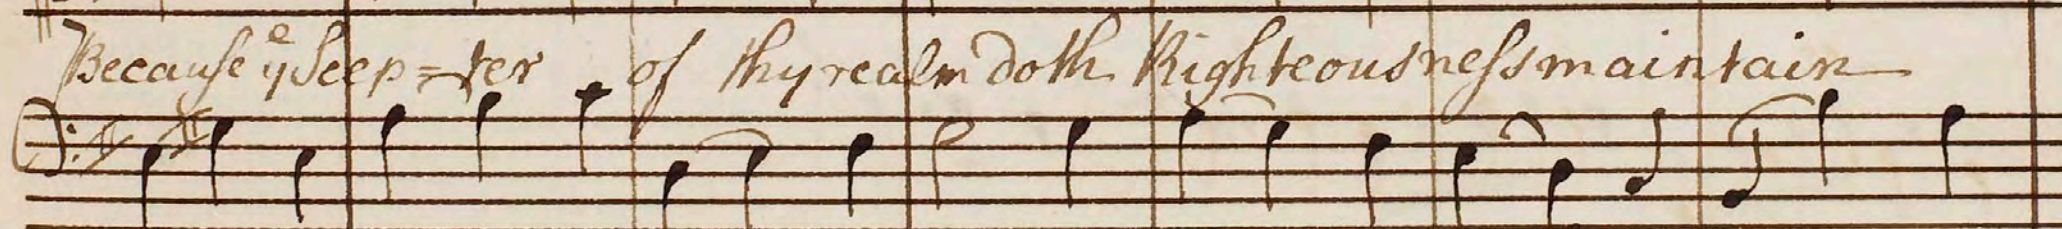 Becauſe yͤ Scep=ter of thy realm doth Righteouſneſs maintain